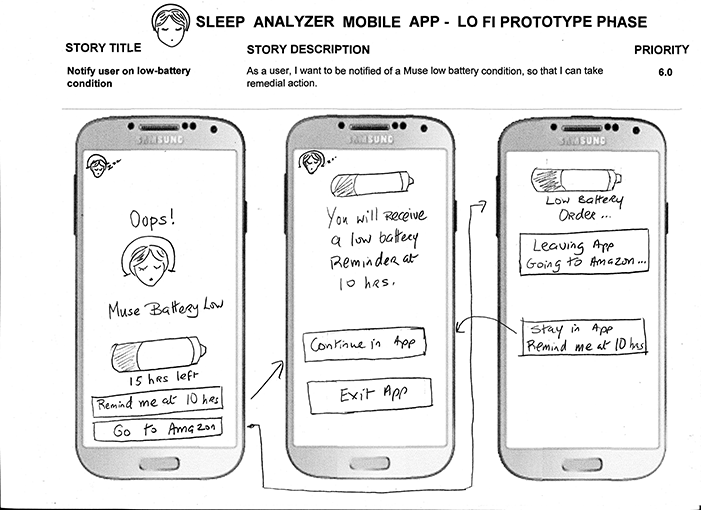 SLEEP ANALYZER MOBILE APP - LO FI PROTOTYPE PHASE
STORY TITLE
STORY DESCRIPTION
PRIORITY
Notify user on low-battery
condition
As a user, I want to be notified of a Muse low battery condition, so that I can take
remedial action.
6.0
SAMSUNG
Oops!
Muse Battery Low
15 hrs left
Remind me at 10 hrs
Go to Amazon
SAMSUNG
You will Receive
a low battery
Reminder at
10 hrs.
Continue in App
Exit App
SAMSUNG
Low Battery
Order...
Leaving App
Going to Amazon...
Stay in App
Remind me at 10 hrs